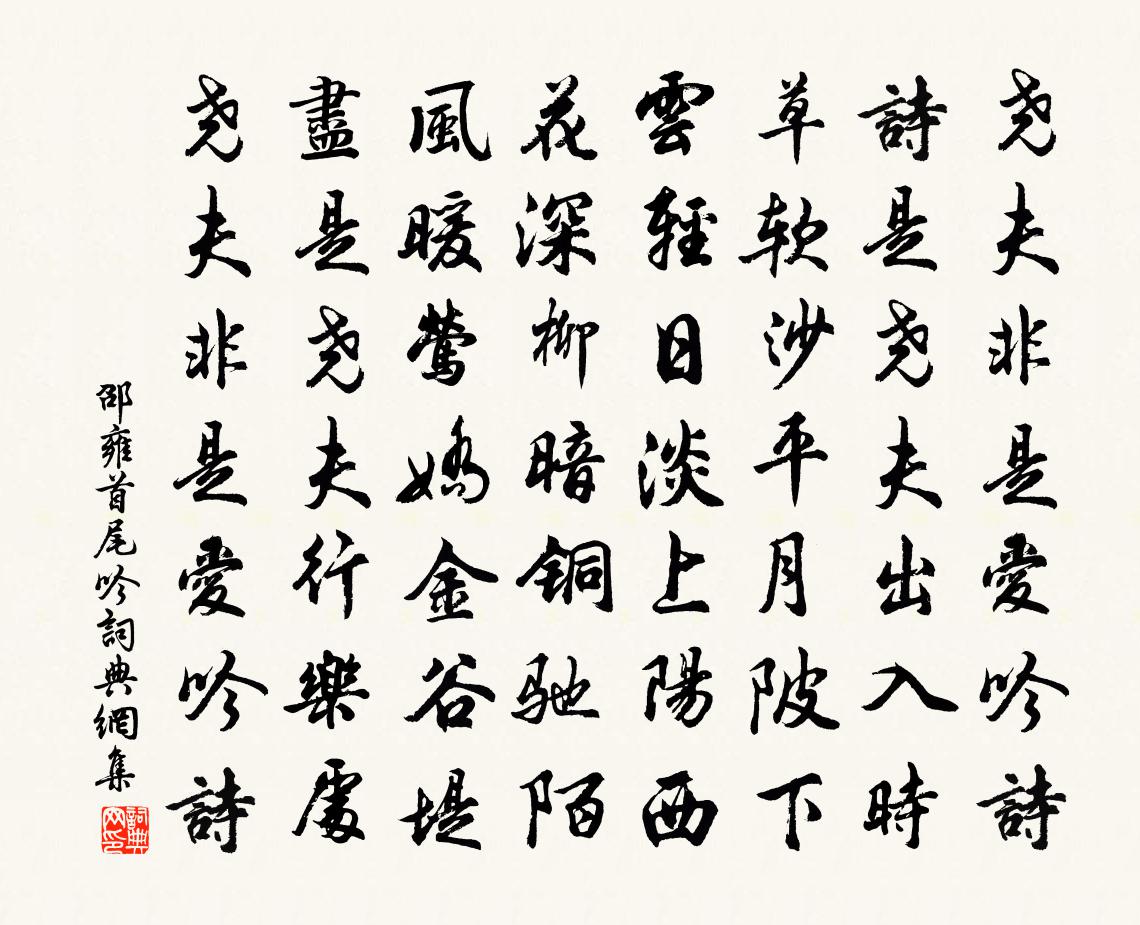 尧夫非是愛吟詩
詩是尧夫出入時
草軟沙平月陂下
雲輕日淡上陽西
花深柳暗銅駝陌
風暖鶯嬌金谷堤
盡是尧夫行樂處
尧夫非是愛吟詩
邵雍首尾吟詞典網集
詞典
网印